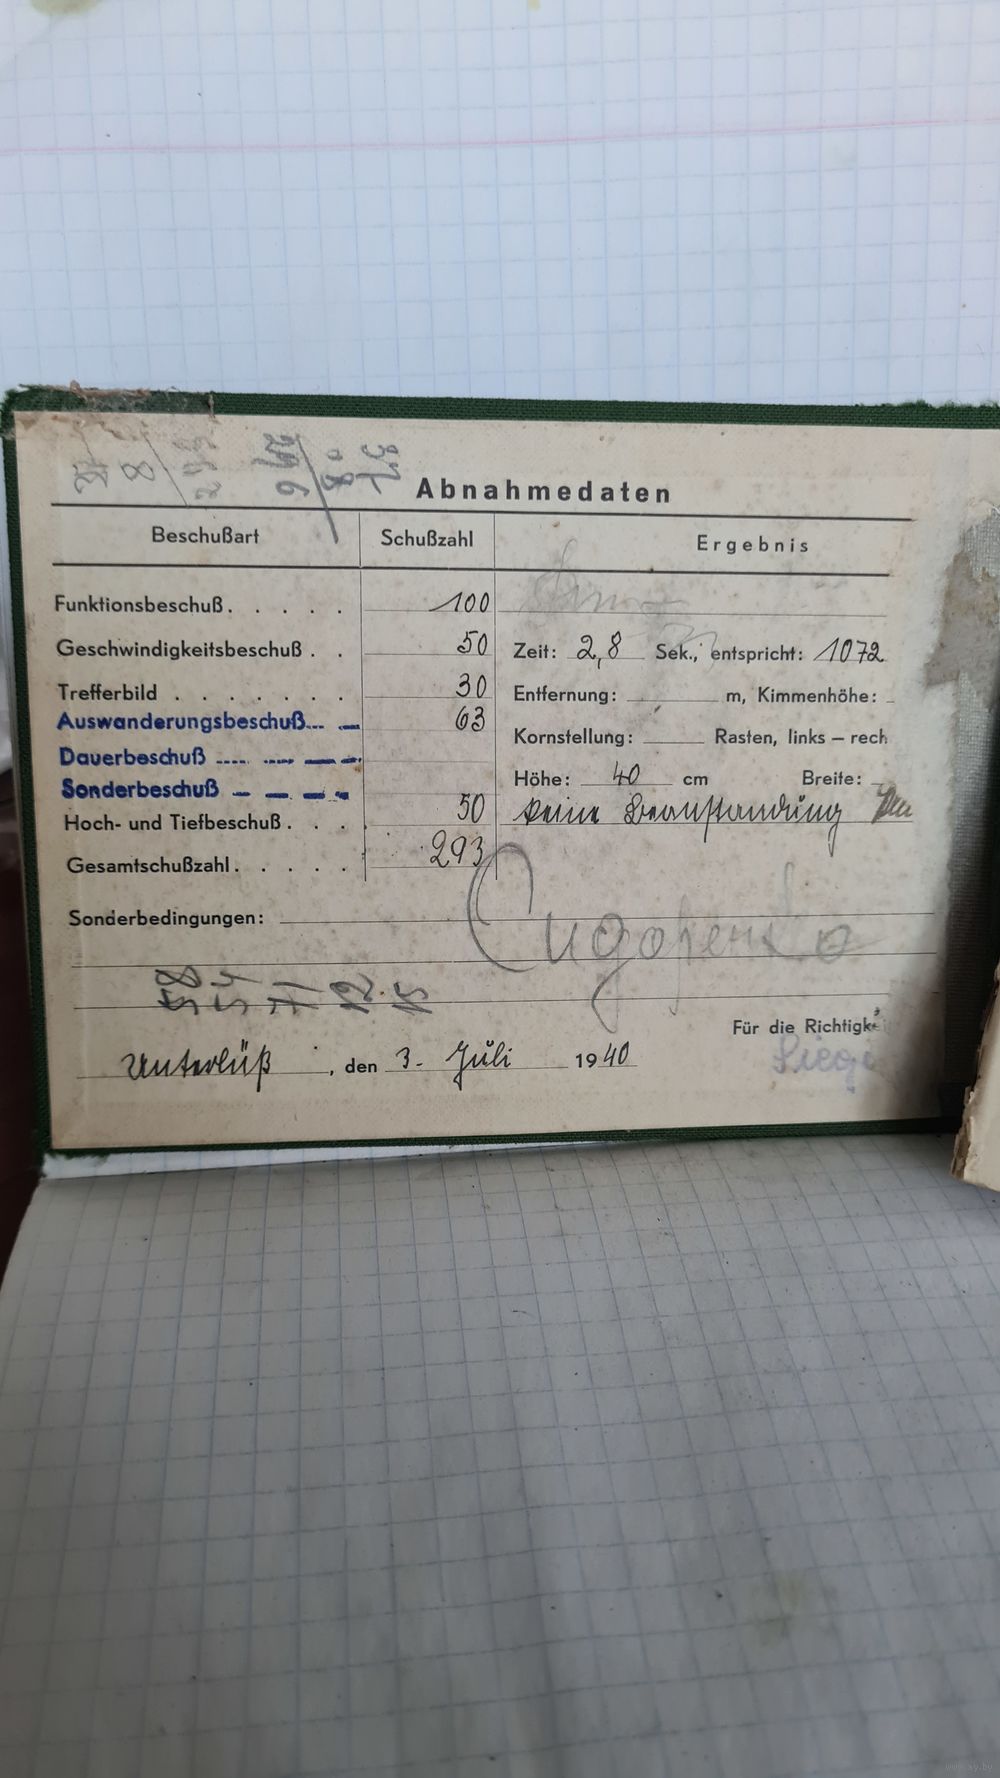 Abnahmedaten
Beschußart Schußzahl Ergebnis
Funktionsbeschuß. . . . . 100
Geschwindigkeitsbeschuß . . 50 Zeit: 2,8 Sek., entspricht: 1072
Trefferbild . . . . . . . 30 Entfernung: m, Kimmenhöhe:
Auswanderungsbeschuß... — 63 Kornstellung: Rasten, links – rech
Dauerbeschuß
Sonderbeschuß Höhe: 40 cm Breite:
Hoch- und Tiefbeschuß . . . 50 keine Beanstandung
Gesamtschußzahl . . . . . 293
Sonderbedingungen:
Сидоренко
Für die Richtigke
Unterlüß, den 3. Juli 1940
www.ay.by